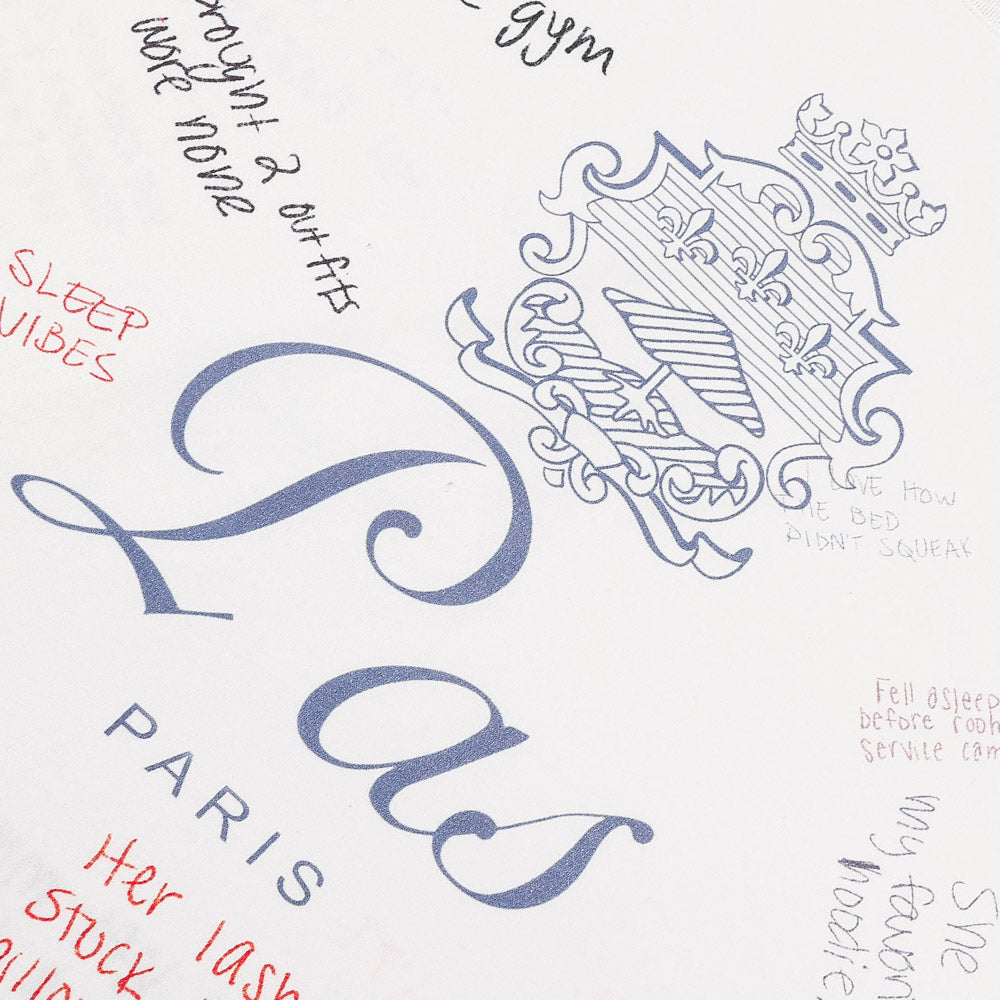 gym
brought 2 outfits
wore none
SLEEP
VIBES
I LOVE HOW
THE BED
DIDN'T SQUEAK
Pas
PARIS
Fell asleep
before room
service cam
Her lash
stuck
She
my favori
hoodie